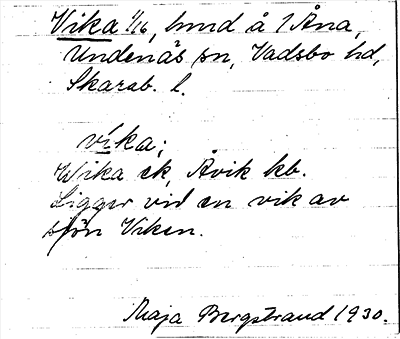 Vika 1/16, lund å 1 Åna,
Undenäs sn, Vadsbo hd,
Skarab. l.
víka;
Wika ek, Åvik kb.
Ligger vid en vik av
sjön Viken.
Maja Bergstrand 1930.